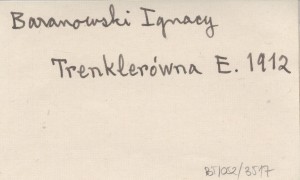 Baranowski Ignacy
Trenklerówna E. 1912